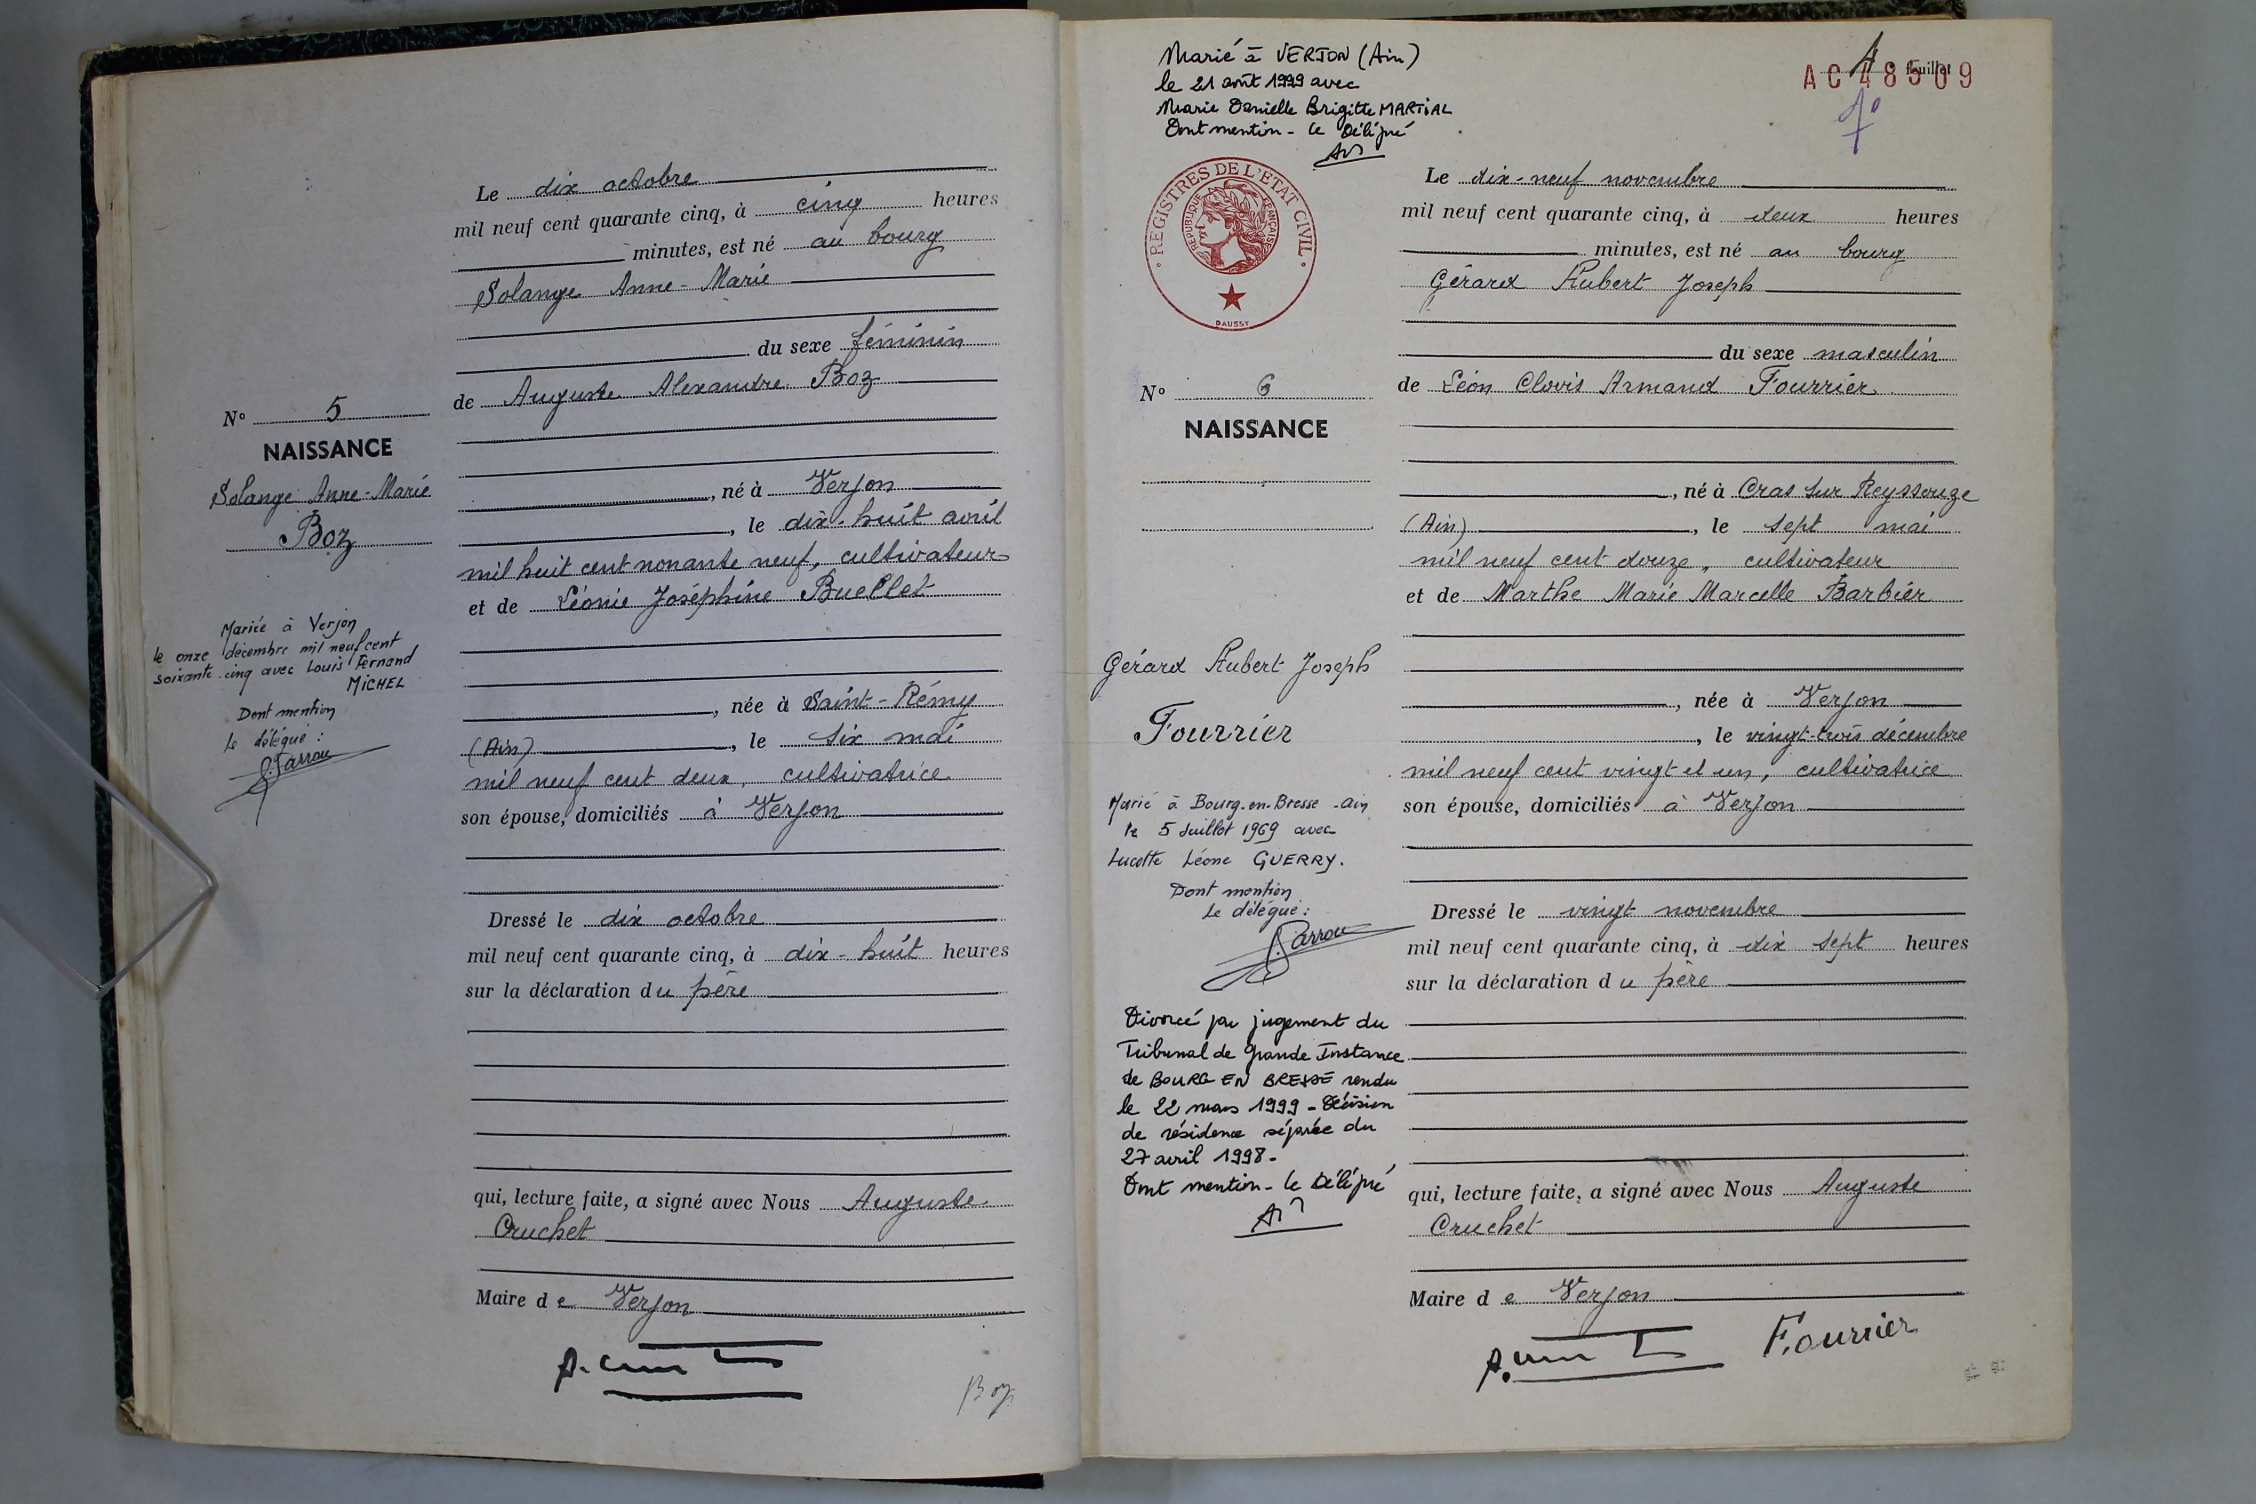 Le dix octobre
mil neuf cent quarante cinq, à cinq heures
minutes, est né au bourg
Solange Anne-Marie
du sexe féminin
de Auguste Alexandre Boz
, né à Verjon
, le dix-huit avril
mil huit cent nonante neuf, cultivateur
et de Léonie Joséphine Buellet
, née à Saint-Rémy
(Ain) , le six mai
mil neuf cent deux, cultivatrice
son épouse, domiciliés à Verjon
Dressé le dix octobre
mil neuf cent quarante cinq, à dix-huit heures
sur la déclaration du père
qui, lecture faite, a signé avec Nous Auguste
Cruchet
Maire de Verjon
Boz
N° 5
NAISSANCE
Solange Anne-Marie
Boz
Mariée à Verjon
le onze décembre mil neuf cent
soixante-cinq avec Louis Fernand
MICHEL
Dont mention
Le délégué :
Marié à VERJON (Ain)
le 21 août 1999 avec
Marie Danielle Brigitte MARTIAL
Dont mention - Le Délégué
AC 48509
feuillet
REGISTRES DE L'ÉTAT CIVIL
RÉPUBLIQUE FRANÇAISE
DAUSSY
N° 6
NAISSANCE
Gérard Hubert Joseph
Fourrier
Marié à Bourg-en-Bresse - Ain
le 5 Juillet 1969 avec
Lucette Léone GUERRY.
Dont mention
Le délégué :
Divorcé par jugement du
Tribunal de Grande Instance
de BOURG EN BRESSE rendu
le 22 mars 1999 - Décision
de résidence séparée du
27 avril 1998 -
Dont mention - Le Délégué
Le dix-neuf novembre
mil neuf cent quarante cinq, à deux heures
minutes, est né au bourg
Gérard Hubert Joseph
du sexe masculin
de Léon Clovis Armand Fourrier
, né à Cras sur Reyssouze
(Ain) , le sept mai
mil neuf cent douze, cultivateur
et de Marthe Marie Marcelle Barbier
, née à Verjon
, le vingt-trois décembre
mil neuf cent vingt et un, cultivatrice
son épouse, domiciliés à Verjon
Dressé le vingt novembre
mil neuf cent quarante cinq, à dix sept heures
sur la déclaration du père
qui, lecture faite, a signé avec Nous Auguste
Cruchet
Maire de Verjon
Fourrier